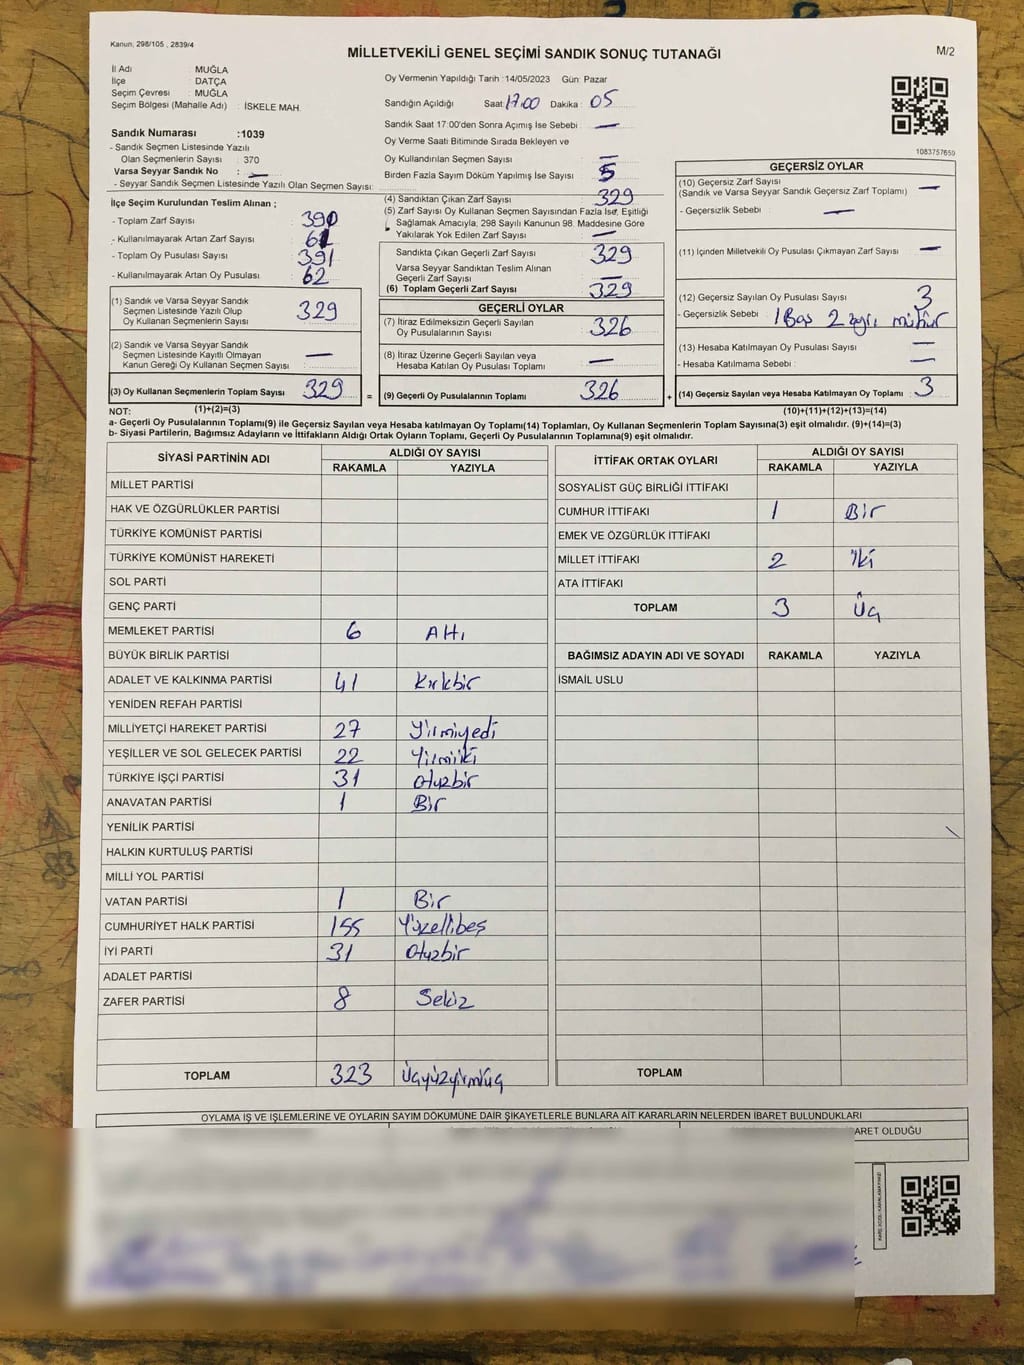 Kanun, 298/105 , 2839/4
MİLLETVEKİLİ GENEL SEÇİMİ SANDIK SONUÇ TUTANAĞI
M/2
İl Adı : MUĞLA
İlçe : DATÇA
Seçim Çevresi : MUĞLA
Seçim Bölgesi (Mahalle Adı) : İSKELE MAH.
Sandık Numarası :1039
- Sandık Seçmen Listesinde Yazılı
Olan Seçmenlerin Sayısı : 370
Varsa Seyyar Sandık No : —
- Seyyar Sandık Seçmen Listesinde Yazılı Olan Seçmen Sayısı:
İlçe Seçim Kurulundan Teslim Alınan ;
- Toplam Zarf Sayısı 390
- Kullanılmayarak Artan Zarf Sayısı 61
- Toplam Oy Pusulası Sayısı 391
- Kullanılmayarak Artan Oy Pusulası 62
(1) Sandık ve Varsa Seyyar Sandık
Seçmen Listesinde Yazılı Olup
Oy Kullanan Seçmenlerin Sayısı 329
(2) Sandık ve Varsa Seyyar Sandık
Seçmen Listesinde Kayıtlı Olmayan
Kanun Gereği Oy Kullanan Seçmen Sayısı —
(3) Oy Kullanan Seçmenlerin Toplam Sayısı 329
Oy Vermenin Yapıldığı Tarih :14/05/2023 Gün: Pazar
Sandığın Açıldığı Saat: 17:00 Dakika : 05
Sandık Saat 17:00'den Sonra Açımış İse Sebebi : —
Oy Verme Saati Bitiminde Sırada Bekleyen ve
Oy Kullandırılan Seçmen Sayısı : —
Birden Fazla Sayım Döküm Yapılmış İse Sayısı : 5
(4) Sandıktan Çıkan Zarf Sayısı 329
(5) Zarf Sayısı Oy Kullanan Seçmen Sayısından Fazla İse, Eşitliği
Sağlamak Amacıyla, 298 Sayılı Kanunun 98. Maddesine Göre
Yakılarak Yok Edilen Zarf Sayısı —
Sandıkta Çıkan Geçerli Zarf Sayısı 329
Varsa Seyyar Sandıktan Teslim Alınan
Geçerli Zarf Sayısı —
(6) Toplam Geçerli Zarf Sayısı 329
GEÇERLİ OYLAR
(7) İtiraz Edilmeksizin Geçerli Sayılan
Oy Pusulalarının Sayısı 326
(8) İtiraz Üzerine Geçerli Sayılan veya
Hesaba Katılan Oy Pusulası Toplamı —
= (9) Geçerli Oy Pusulalarının Toplamı 326
1083757650
GEÇERSİZ OYLAR
(10) Geçersiz Zarf Sayısı
(Sandık ve Varsa Seyyar Sandık Geçersiz Zarf Toplamı) —
- Geçersizlik Sebebi : —
(11) İçinden Milletvekili Oy Pusulası Çıkmayan Zarf Sayısı —
(12) Geçersiz Sayılan Oy Pusulası Sayısı 3
- Geçersizlik Sebebi : 1 Boş 2 ayrı mühür
(13) Hesaba Katılmayan Oy Pusulası Sayısı —
- Hesaba Katılmama Sebebi : —
+ (14) Geçersiz Sayılan veya Hesaba Katılmayan Oy Toplamı 3
NOT: (1)+(2)=(3)
(10)+(11)+(12)+(13)=(14)
a- Geçerli Oy Pusulalarının Toplamı(9) ile Geçersiz Sayılan veya Hesaba katılmayan Oy Toplamı(14) Toplamları, Oy Kullanan Seçmenlerin Toplam Sayısına(3) eşit olmalıdır. (9)+(14)=(3)
b- Siyasi Partilerin, Bağımsız Adayların ve İttifakların Aldığı Ortak Oyların Toplamı, Geçerli Oy Pusulalarının Toplamına(9) eşit olmalıdır.
SİYASİ PARTİNİN ADI
ALDIĞI OY SAYISI
RAKAMLA YAZIYLA
MİLLET PARTİSİ
HAK VE ÖZGÜRLÜKLER PARTİSİ
TÜRKİYE KOMÜNİST PARTİSİ
TÜRKİYE KOMÜNİST HAREKETİ
SOL PARTİ
GENÇ PARTİ
MEMLEKET PARTİSİ 6 Altı
BÜYÜK BİRLİK PARTİSİ
ADALET VE KALKINMA PARTİSİ 41 Kırkbir
YENİDEN REFAH PARTİSİ
MİLLİYETÇİ HAREKET PARTİSİ 27 Yirmiyedi
YEŞİLLER VE SOL GELECEK PARTİSİ 22 Yirmiiki
TÜRKİYE İŞÇİ PARTİSİ 31 Otuzbir
ANAVATAN PARTİSİ 1 Bir
YENİLİK PARTİSİ
HALKIN KURTULUŞ PARTİSİ
MİLLİ YOL PARTİSİ
VATAN PARTİSİ 1 Bir
CUMHURİYET HALK PARTİSİ 155 Yüzellibeş
İYİ PARTİ 31 Otuzbir
ADALET PARTİSİ
ZAFER PARTİSİ 8 Sekiz
TOPLAM 323 Üçyüzyirmiüç
İTTİFAK ORTAK OYLARI
ALDIĞI OY SAYISI
RAKAMLA YAZIYLA
SOSYALİST GÜÇ BİRLİĞİ İTTİFAKI
CUMHUR İTTİFAKI 1 Bir
EMEK VE ÖZGÜRLÜK İTTİFAKI
MİLLET İTTİFAKI 2 İki
ATA İTTİFAKI
TOPLAM 3 Üç
BAĞIMSIZ ADAYIN ADI VE SOYADI RAKAMLA YAZIYLA
İSMAİL USLU
TOPLAM
OYLAMA İŞ VE İŞLEMLERİNE VE OYLARIN SAYIM DÖKÜMÜNE DAİR ŞİKAYETLERLE BUNLARA AİT KARARLARIN NELERDEN İBARET BULUNDUKLARI
ARET OLDUĞU